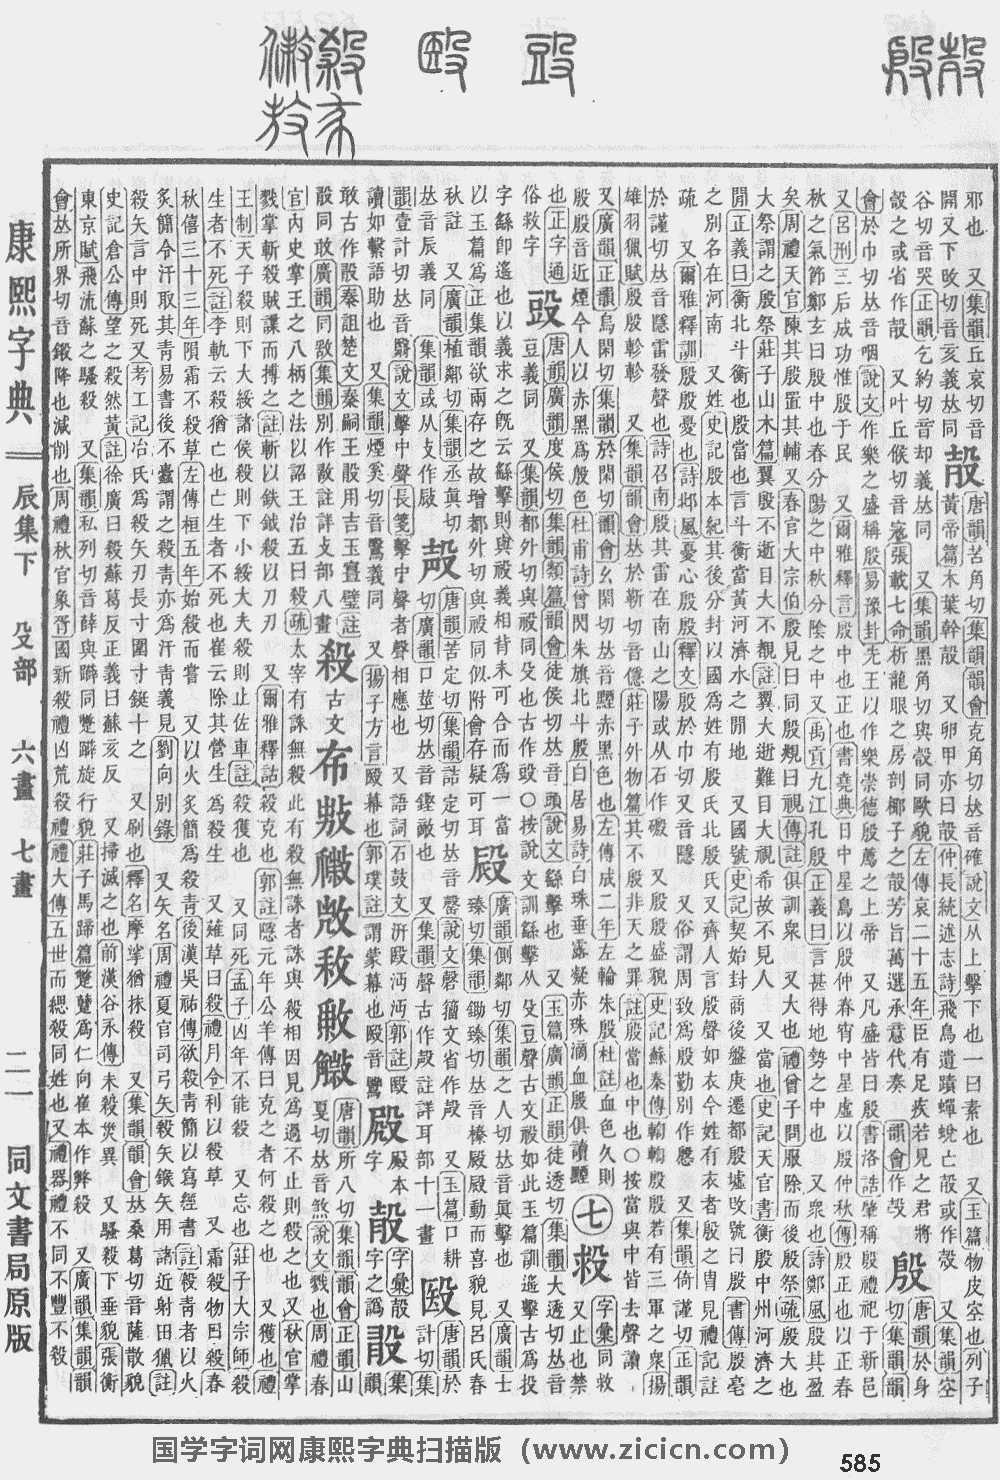 邪也 又集韻丘哀切音
開又下攺切音亥義𠀤同
㱿
唐韻苦角切集韻韻會克角切𠀤音確說文从上擊下也一曰素也 又玉篇物皮空也列子
黃帝篇木葉幹㱿 又卵甲亦曰㱿仲長統述志詩飛鳥遺蹟蟬蛻亡㱿或作殻 又集韻空
谷切音哭正韻乞約切音却義𠀤同 又集韻黑角切與㱿同歐貌左傳哀二十五年臣有足疾若見之君將
㱿之或省作㱿 又叶丘候切音寇張載七命析龍眼之房剖椰子之㱿芳旨萬選承意代奏 韻會作殼
殷
唐韻於身
切集韻韻
會於巾切𠀤音咽說文作樂之盛稱殷易豫卦先王以作樂崇德殷薦之上帝 又凡盛皆曰殷書洛誥肇稱殷禮祀于新邑
又呂刑三后成功惟殷于民 又爾雅釋言殷中也正也書堯典日中星鳥以殷仲春宵中星虛以殷仲秋傳殷正也以正春
秋之氣節鄭玄曰殷中也春分陽之中秋分陰之中又禹貢九江孔殷正義曰言甚得地勢之中也 又衆也詩鄭風殷其盈
矣周禮天官陳其殷置其輔 又春官大宗伯殷見曰同殷覜曰視傳註俱訓衆 又大也禮曾子問服除而後殷祭疏殷大也
大祭謂之殷祭莊子山木篇翼殷不逝目大不覩註翼大逝難目大視希故不見人 又當也史記天官書衡殷中州河濟之
閒正義曰衡北斗衡也殷當也言斗衡當黃河濟水之閒地 又國號史記契始封商後盤庚遷都殷墟攺號曰殷書傳殷亳
之別名在河南 又姓史記殷本紀其後分封以國爲姓有殷氏北殷氏又齊人言殷聲如衣今姓有衣者殷之冑見禮記註
疏 又爾雅釋訓殷殷憂也詩邶風憂心殷殷釋文殷於巾切又音隱 又俗謂周致爲殷勤別作慇 又集韻倚謹切正韻
於謹切𠀤音隱雷發聲也詩召南殷其雷在南山之陽或从石作磤 又殷殷盛貌史記蘇秦傳輷輷殷殷若有三軍之衆揚
雄羽獵賦殷殷軫軫 又集韻韻會𠀤於靳切音億莊子外物篇其不殷非天之罪註殷當也中也○按當與中皆去聲讀
又廣韻正韻烏閑切集韻於閑切韻會幺閑切𠀤音黫赤黑色也左傳成二年左輪朱殷杜註血色久則
殷殷音近煙今人以赤黑爲殷色杜甫詩曾閃朱旗北斗殷白居易詩白珠垂露凝赤珠滴血殷俱讀黫
七
𣪁
字彙同𢽾
又止也禁
也正字通
俗𢽾字
㱾
唐韻廣韻度侯切集韻類篇韻會徒侯切𠀤音頭說文繇擊也 又玉篇廣韻正韻徒透切集韻大透切𠀤音
豆義同 又集韻都外切與祋同殳也古作㱾○按說文訓繇擊从殳豆聲古文祋如此玉篇訓遙擊古爲投
字繇卽遙也以義求之旣云繇擊則與祋義相背未可合而爲一當
以玉篇爲正集韻欲兩存之故增都外切與祋同似附會存疑可耳
廣韻側鄰切集韻之人切𠀤音眞擊也 又廣韻士
臻切集韻鋤臻切𠀤音榛㱽㱽動而喜貌見呂氏春
秋註 又廣韻植鄰切集韻丞眞切
𠀤音辰義同 集韻或从攴作敐
㱿
唐韻苦定切集韻詰定切𠀤音罄說文磬籀文省作殸 又玉篇口耕
切廣韻口莖切𠀤音鏗㪣也 又集韻聲古作殸註詳耳部十一畫
殹
唐韻於
計切集
韻壹計切𠀤音翳說文擊中聲長箋擊中聲者聲相應也 又語詞石鼓文汧殹沔沔郭註殹
讀如繄語助也 又集韻煙奚切音鷖義同 又揚子方言殹幕也郭璞註謂蒙幕也殹音鷖
殿
殿本
字
㱼
字彙㱿
字之譌
㱺
集
韻
敢古作㱺秦詛楚文秦嗣王㱺用吉玉亶璧註
㱺同敢廣韻同敔集韻別作敢註詳攴部八畫
殺
古文
布
𢽅
𥻦
𢿽
𢼄
𢾃
唐韻所八切集韻韻會正韻山
戛切𠀤音煞說文戮也周禮春
官內史掌王之八柄之法以詔王治五曰殺疏太宰有誅無殺此有殺無誅者誅與殺相因見爲過不止則殺之也又秋官掌
戮掌斬殺賊諜而搏之註斬以鈇鉞殺以刀刃 又爾雅釋詁殺克也郭註隱元年公羊傳曰克之者何殺之也 又獲也禮
王制天子殺則下大綏諸侯殺則下小綏大夫殺則止佐車註殺獲也 又同死孟子凶年不能殺 又忘也莊子大宗師殺
生者不死註李軌云殺猶亡也亡生者不死也崔云除其營生爲殺生 又薙草曰殺禮月令利以殺草 又霜殺物曰殺春
秋僖三十三年隕霜不殺草左傳桓五年始殺而嘗 又以火炙簡爲殺靑後漢吳祐傳欲殺靑簡以寫經書註殺靑者以火
炙簡令汗取其靑易書後不蠹謂之殺靑亦爲汗靑義見劉向別錄 又矢名周禮夏官司弓矢殺矢鍭矢用諸近射田獵註
殺矢言中則死又考工記冶氏爲殺矢刃長寸圍寸鋌十之 又刷也釋名摩挲猶抹殺 又集韻韻會𠀤桑葛切音薩散貌
史記倉公傳望之殺然黃註徐廣曰殺蘇葛反正義曰蘇亥反 又掃滅之也前漢谷永傳未殺災異 又騷殺下垂貌張衡
東京賦飛流蘇之騷殺 又集韻私列切音薛與躃同蹩躃旋行貌莊子馬蹄篇蹩躠爲仁向崔本作弊殺 又廣韻集韻韻
會𠀤所界切音鎩降也減削也周禮秋官象胥國新殺禮凶荒殺禮禮大傳五世而緦殺同姓也又禮器禮不同不豐不殺
康熙字典
辰集下 殳部 六畫 七畫
二一
同文書局原版
国学字词网康熙字典扫描版（www.zicicn.com）
585